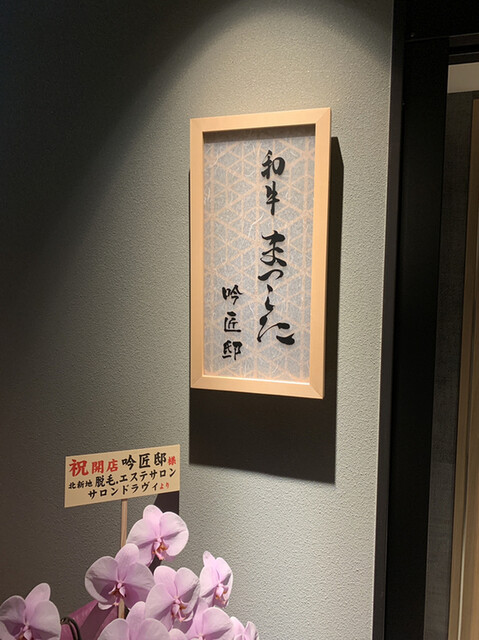 和牛 まつした
吟匠邸
祝開店 吟匠邸様
北新地 脱毛.エステサロン
サロンドラヴィより